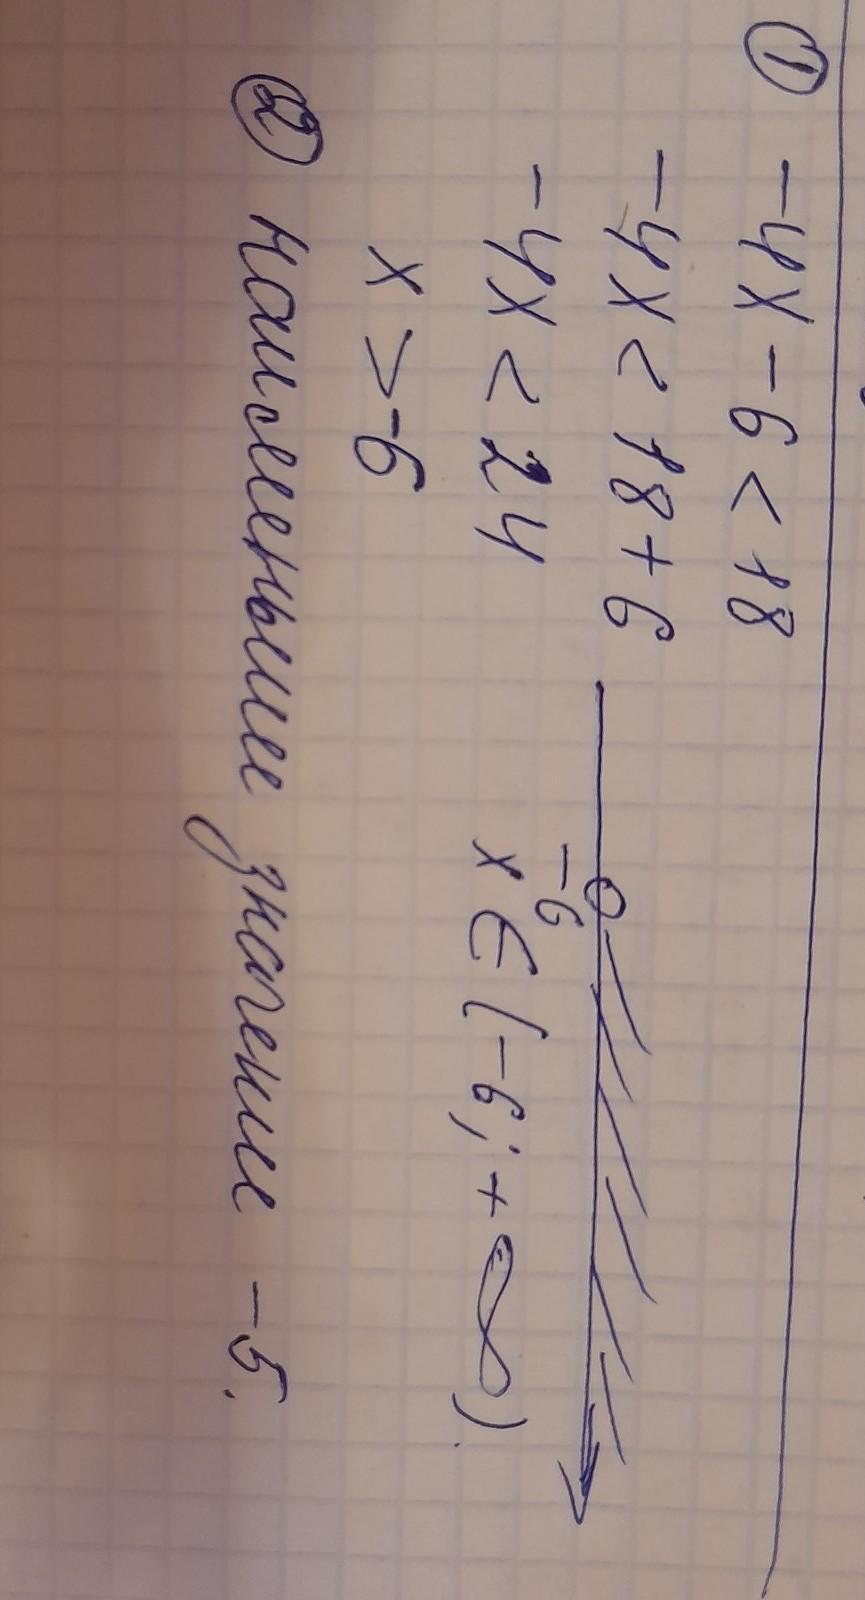 ① -4x - 6 < 18
-4x < 18 + 6
-4x < 24
x > -6
-6
x ∈ (-6; +∞)
② наименьшее значение -5.